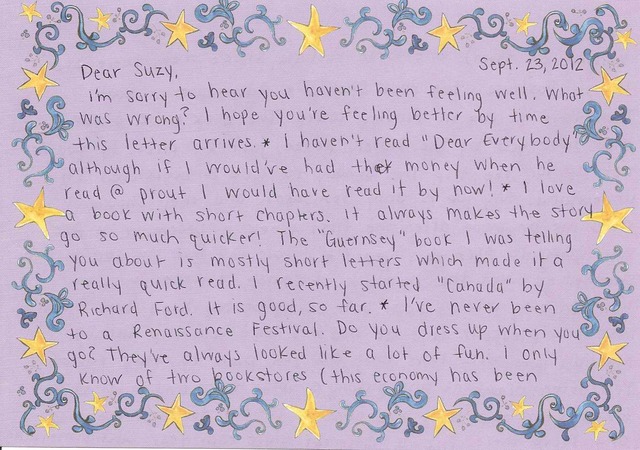 Dear Suzy,
Sept. 23, 2012
I'm sorry to hear you haven't been feeling well. What
was wrong? I hope you're feeling better by time
this letter arrives. * I haven't read "Dear Everybody"
although if I would've had the money when he
read @ prout I would have read it by now! * I love
a book with short chapters. It always makes the story
go so much quicker! The "Guernsey" book I was telling
you about is mostly short letters which made it a
really quick read. I recently started "Canada" by
Richard Ford. It is good, so far. * I've never been
to a Renaissance Festival. Do you dress up when you
go? They've always looked like a lot of fun. I only
know of two bookstores (this economy has been